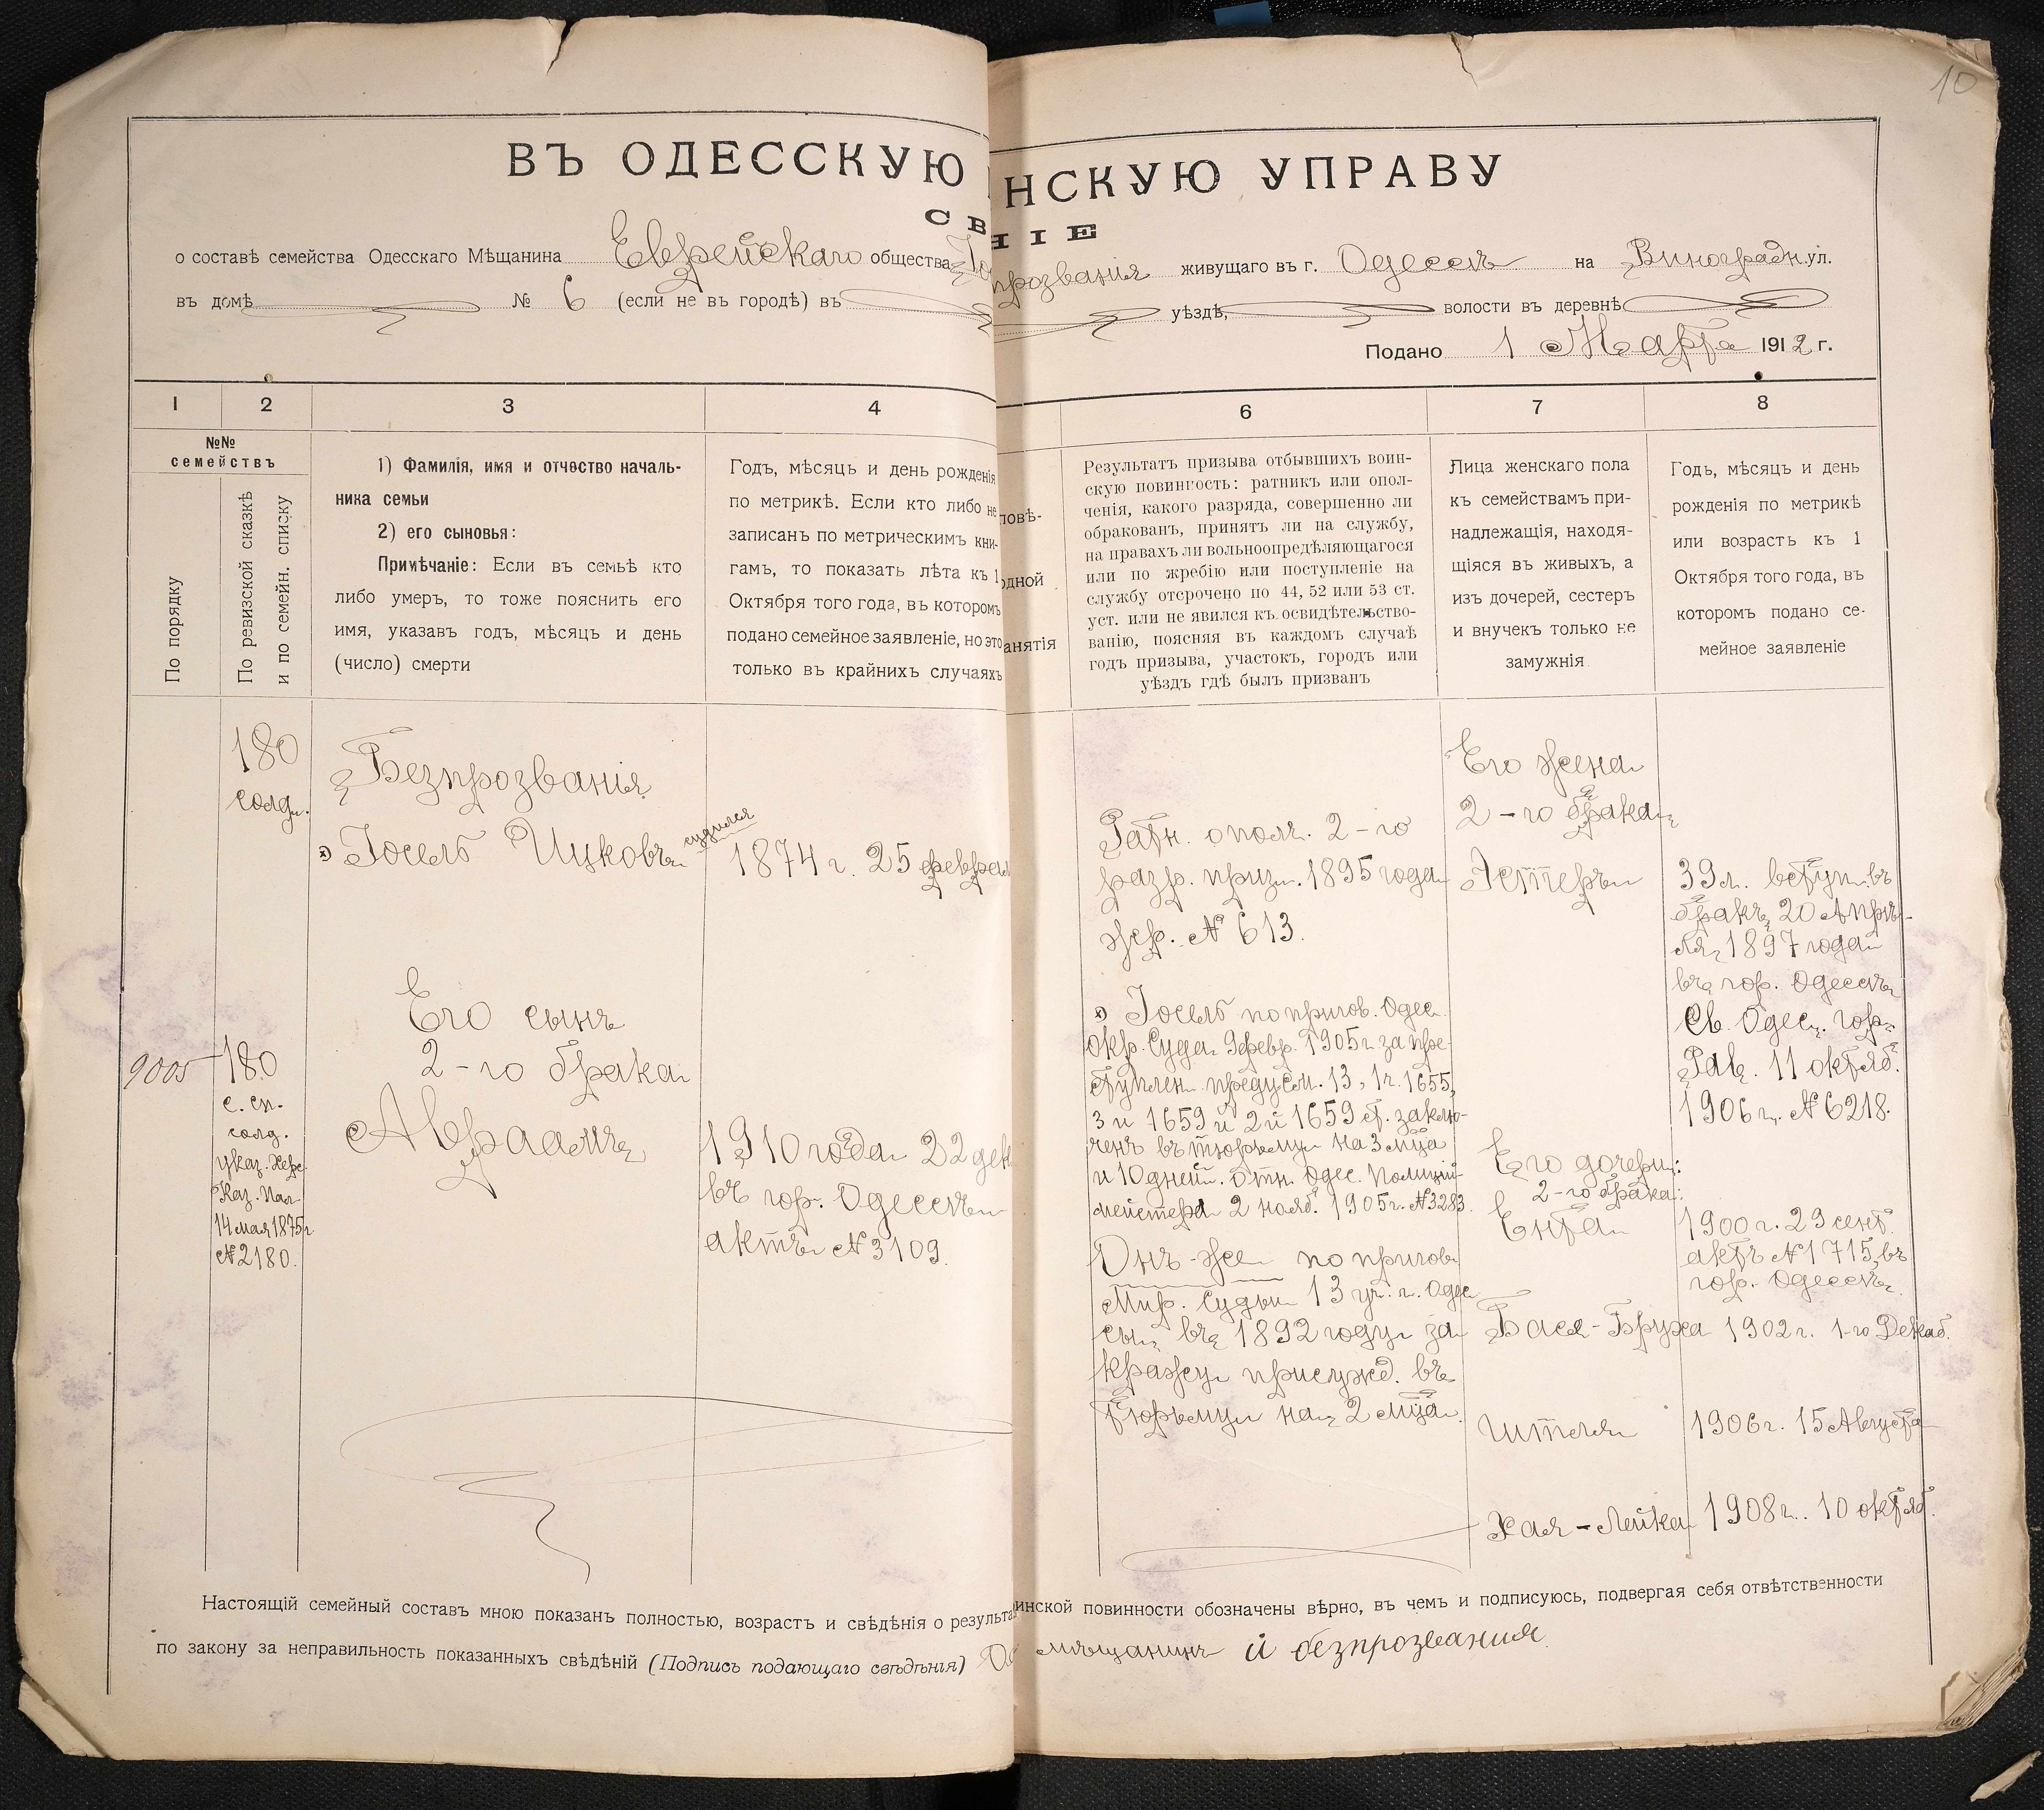 10
ВЪ ОДЕССКУЮ НСКУЮ УПРАВУ
СВ НІЕ
о составѣ семейства Одесскаго Мѣщанина Еврейскаго общества прозванія живущаго въ г. Одессѣ на Виноградн. ул.
въ домѣ № 6 (если не въ городѣ) въ уѣздѣ, волости въ деревнѣ
Подано 1 Марта 1912 г.
1 2 3 4 6 7 8
№№
семействъ
По порядку
По ревизской сказкѣ
и по семейн. списку
1) Фамилія, имя и отчество началь-
ника семьи
2) его сыновья:
Примѣчаніе: Если въ семьѣ кто
либо умеръ, то тоже пояснить его
имя, указавъ годъ, мѣсяцъ и день
(число) смерти
Годъ, мѣсяцъ и день рожденія
по метрикѣ. Если кто либо не
записанъ по метрическимъ кни-
гамъ, то показать лѣта къ 1
Октября того года, въ которомъ
подано семейное заявленіе, но это
только въ крайнихъ случаяхъ
повѣ-
одной
анятія
Результатъ призыва отбывшихъ воин-
скую повинность: ратникъ или опол-
ченія, какого разряда, совершенно ли
обракованъ, принятъ ли на службу,
на правахъ ли вольноопредѣляющагося
или по жребію или поступленіе на
службу отсрочено по 44, 52 или 53 ст.
уст. или не явился къ освидѣтельство-
ванію, поясняя въ каждомъ случаѣ
годъ призыва, участокъ, городъ или
уѣздъ гдѣ былъ призванъ
Лица женскаго пола
къ семействамъ при-
надлежащія, находя-
щіяся въ живыхъ, а
изъ дочерей, сестеръ
и внучекъ только не
замужнія
Годъ, мѣсяцъ и день
рожденія по метрикѣ
или возрастъ къ 1
Октября того года, въ
которомъ подано се-
мейное заявленіе
180
солд.
Безпрозванія
х) Іосель Ицковъ судился
1874 г. 25 феврал
Его сынъ
2-го брака
Авраамъ
9005
180
с. сп.
солд.
указ. Херс.
Каз. Пал.
14 мая 1875 г.
№ 2180.
1910 года 22 дек
въ гор. Одессѣ
актъ № 3109.
Ратн. ополч. 2-го
разр. приз. 1895 года
жер. № 613.
х) Іосель по пригов. Одес.
Окр. Суда 9 февр. 1905 г. за пре-
ступлен. предусм. 13, 1 ч. 1655,
3 и 1659 и 2 и 1659 ст. заклю-
ченъ въ тюрьму на 3 мца
и 10 дней. Отн. Одес. Полицій-
мейстера 2 нояб. 1905 г. № 3283.
Онъ-же по пригов.
Мир. Судьи 13 уч. г. Одес
сы въ 1892 году за
кражу присужд. въ
тюрьму на 2 мца.
Его жена
2-го брака
Эстеръ
39 л. вступ. въ
бракъ 20 Апрѣ-
ля 1897 года
въ гор. Одессѣ
Св. Одес. гор.
Рав. 11 октяб.
1906 г. № 6218.
Его дочери:
2-го брака:
Ента
1900 г. 29 сент.
актъ № 1715 въ
гор. Одессѣ
Бася-Бруха 1902 г. 1-го Декаб.
Ителя 1906 г. 15 Августа
Хая-Лейка 1908 г. 10 октяб.
Настоящій семейный составъ мною показанъ полностью, возрастъ и свѣдѣнія о результа инской повинности обозначены вѣрно, въ чемъ и подписуюсь, подвергая себя отвѣтственности
по закону за неправильность показанныхъ свѣдѣній (Подпись подающаго свѣдѣнія) мѣщанинъ й безпрозвания